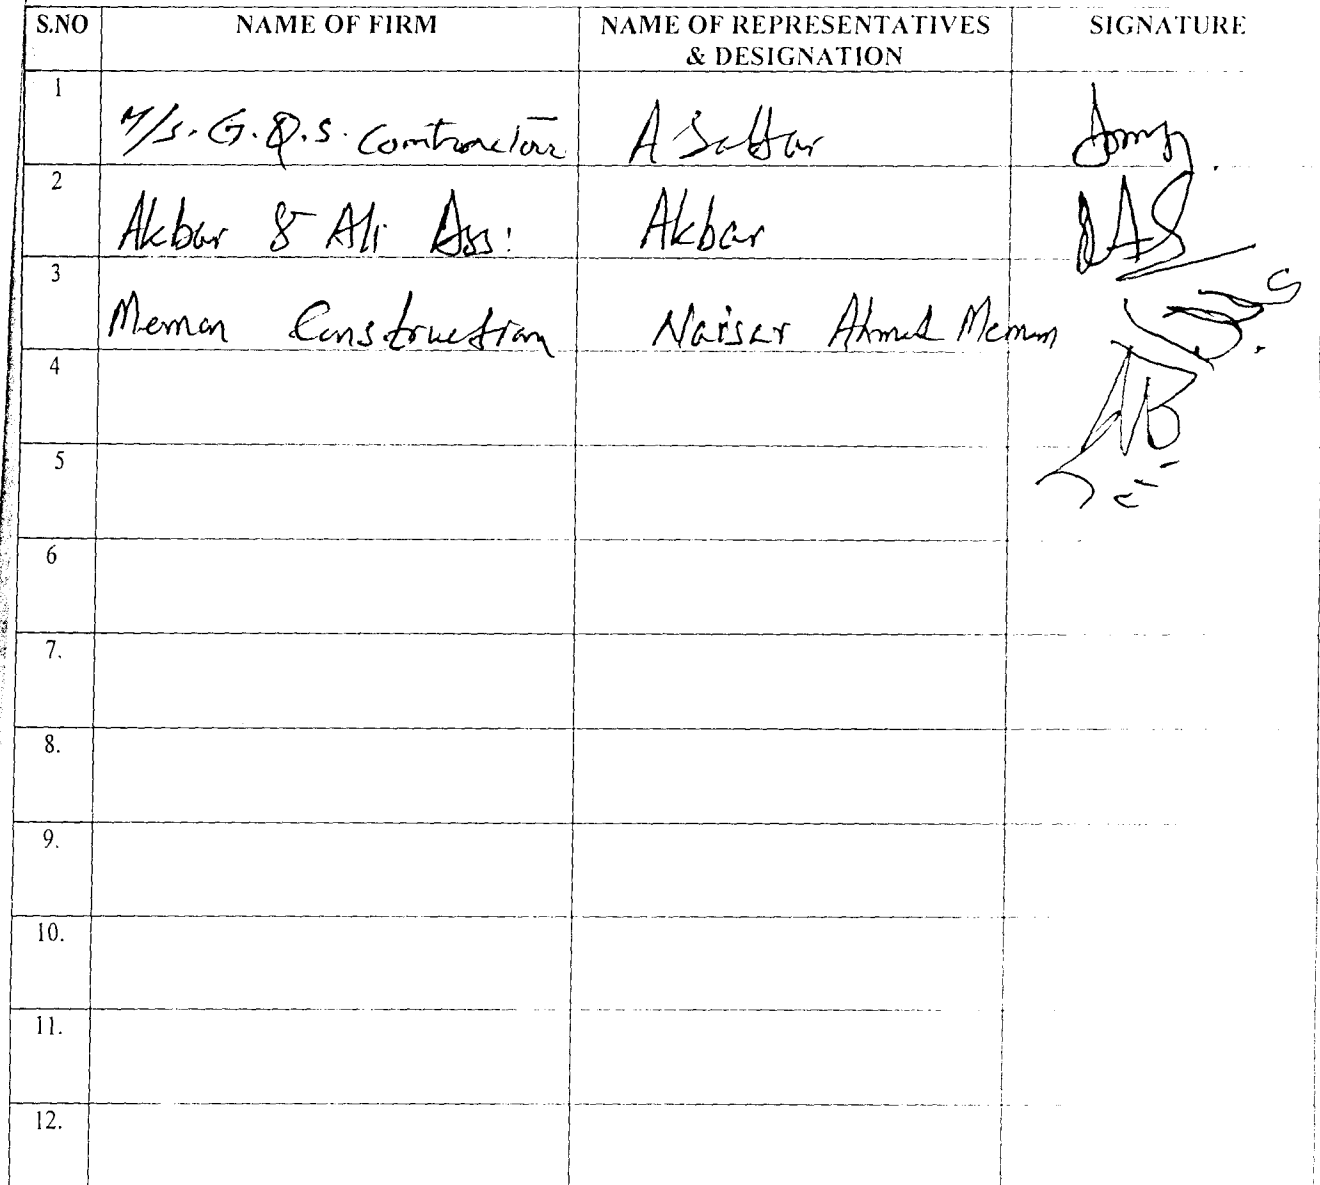 S.NO NAME OF FIRM NAME OF REPRESENTATIVES SIGNATURE
& DESIGNATION
1
M/s. G.Q.S. Contractor A Sattar
2
Akbar & Ali Ass: Akbar
3
Memon Construction Naisar Ahmed Memon
4
5
6
7.
8.
9.
10.
11.
12.